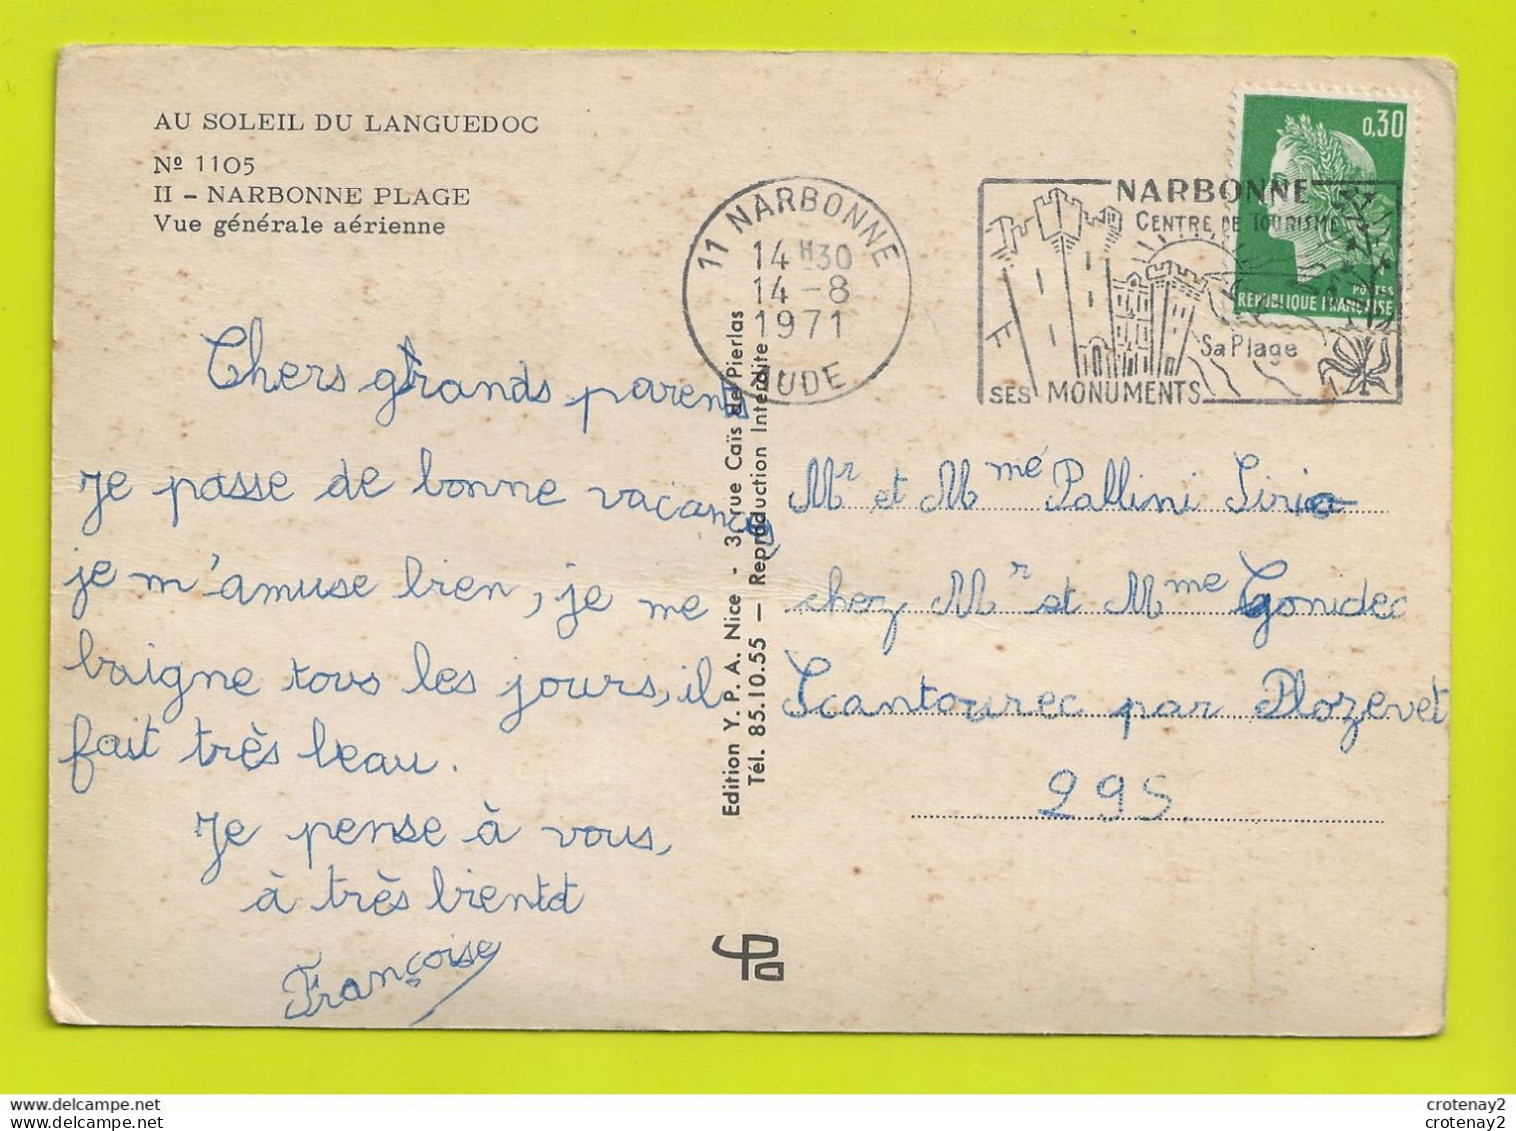 AU SOLEIL DU LANGUEDOC
Nº 1105
II - NARBONNE PLAGE
Vue générale aérienne
11 NARBONNE
14 H30
14 - 8
1971
AUDE
NARBONNE
CENTRE DE TOURISME
Sa Plage
SES MONUMENTS
0,30
POSTES
REPUBLIQUE FRANÇAISE
Chers grands parents
je passe de bonne vacances
je m'amuse bien, je me
baigne tous les jours, il
fait très beau.
Je pense à vous,
à très bientôt
Françoise
Edition Y. P. A. Nice - 3, rue Caïs de Pierlas
Tél. 85.10.55 — Reproduction Interdite
Mr et Mme Pallini Siria
chez Mr et Mme Gonidec
Scantourec par Plozevet
29S.
YPA
crotenay2
crotenay2
crotenay2
crotenay2